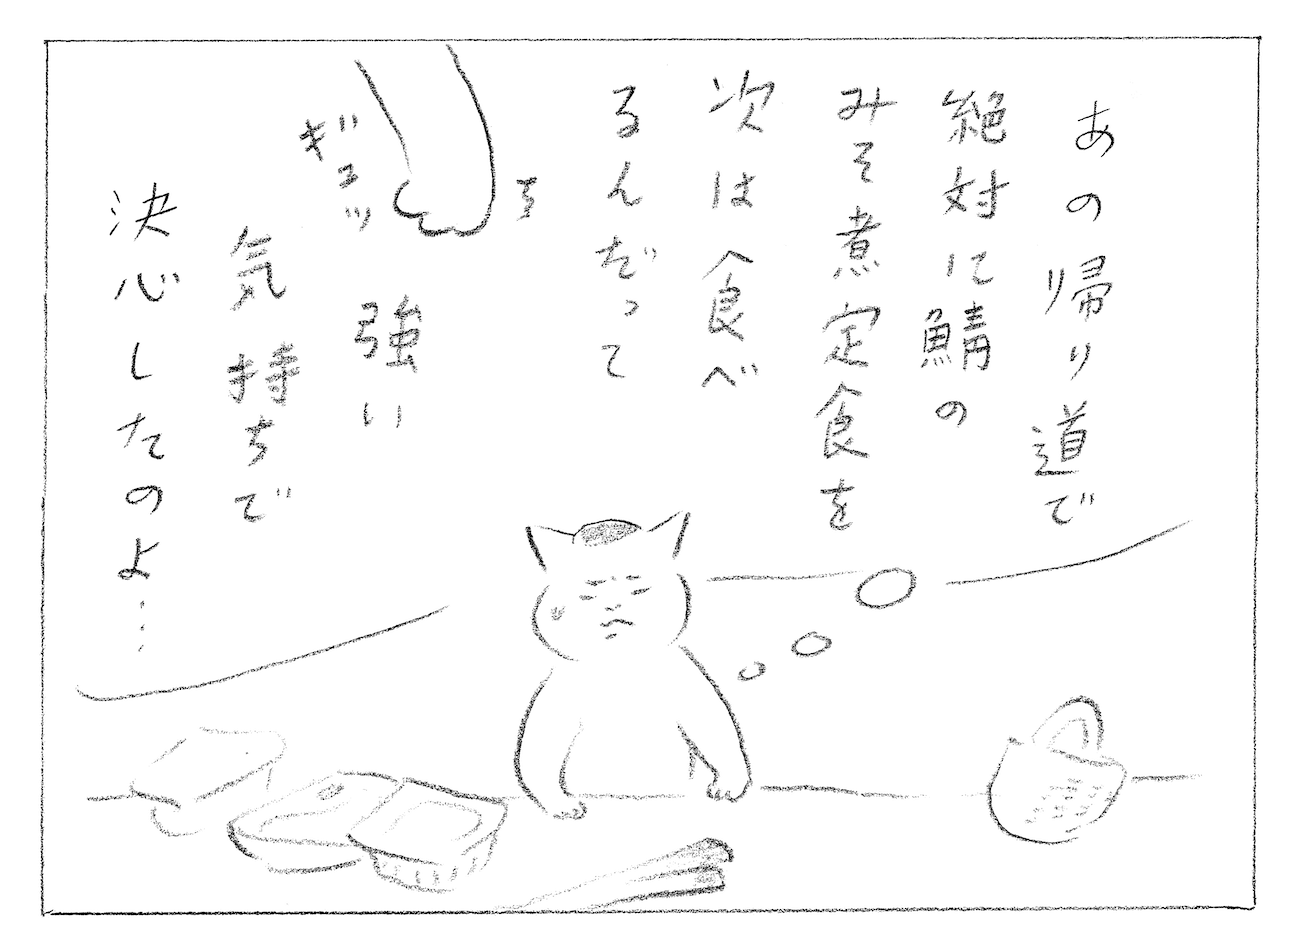 あの帰り道で
絶対に鯖の
みそ煮定食を
次は食べ
るんだって
ギュッ
強い
気持ちで
決心したのよ…